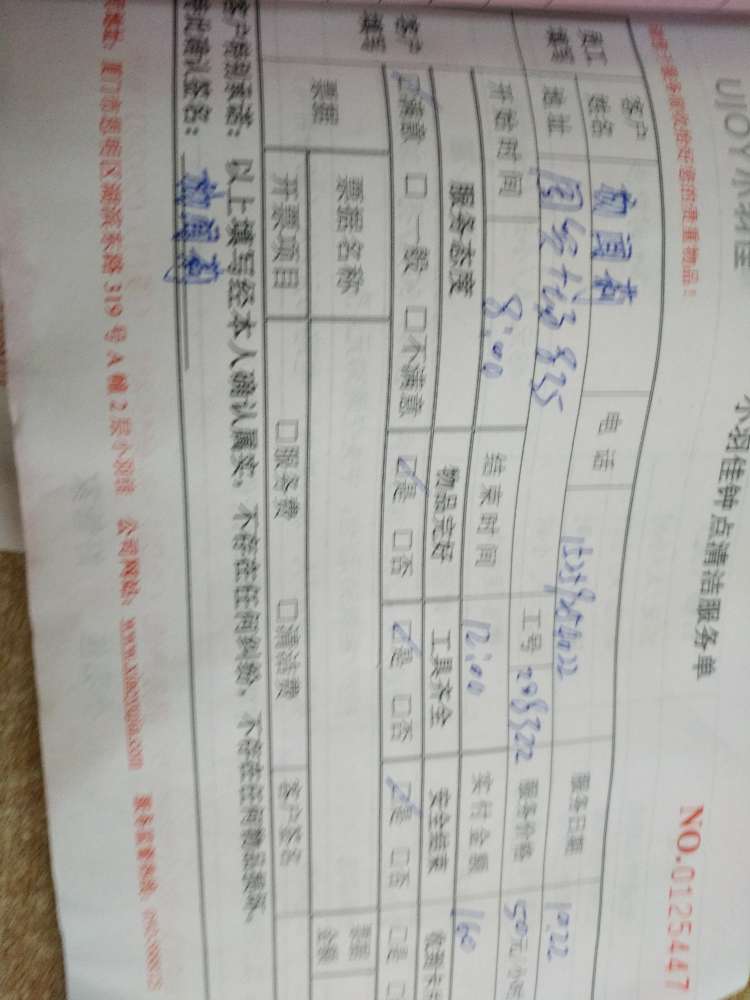 UJOY小羽佳
小羽佳钟点清洁服务单
NO.0125447
客户姓名 电话 服务日期 10.22
地址 825 工号 298322 服务价格 50元/小时
开始时间 8:00 结束时间 12:00 实付金额 160
员工填写
客户填写
服务态度 物品完好 工具齐全 安全结束
☑满意 □一般 □不满意 ☑是 □否 ☑是 □否 ☑是 □否 □是
票据 票据名称 票据金额
开票项目 □服务费 □清洁费 客户签名
客户特别承诺：以上填写经本人确认属实，不存在任何纠纷，不存在任何物品损坏，
特此确认签名：
厦门市思明区湖滨东路319号A幢2层小羽佳 公司网站：www.xiaoyujia.com 服务监督热线：